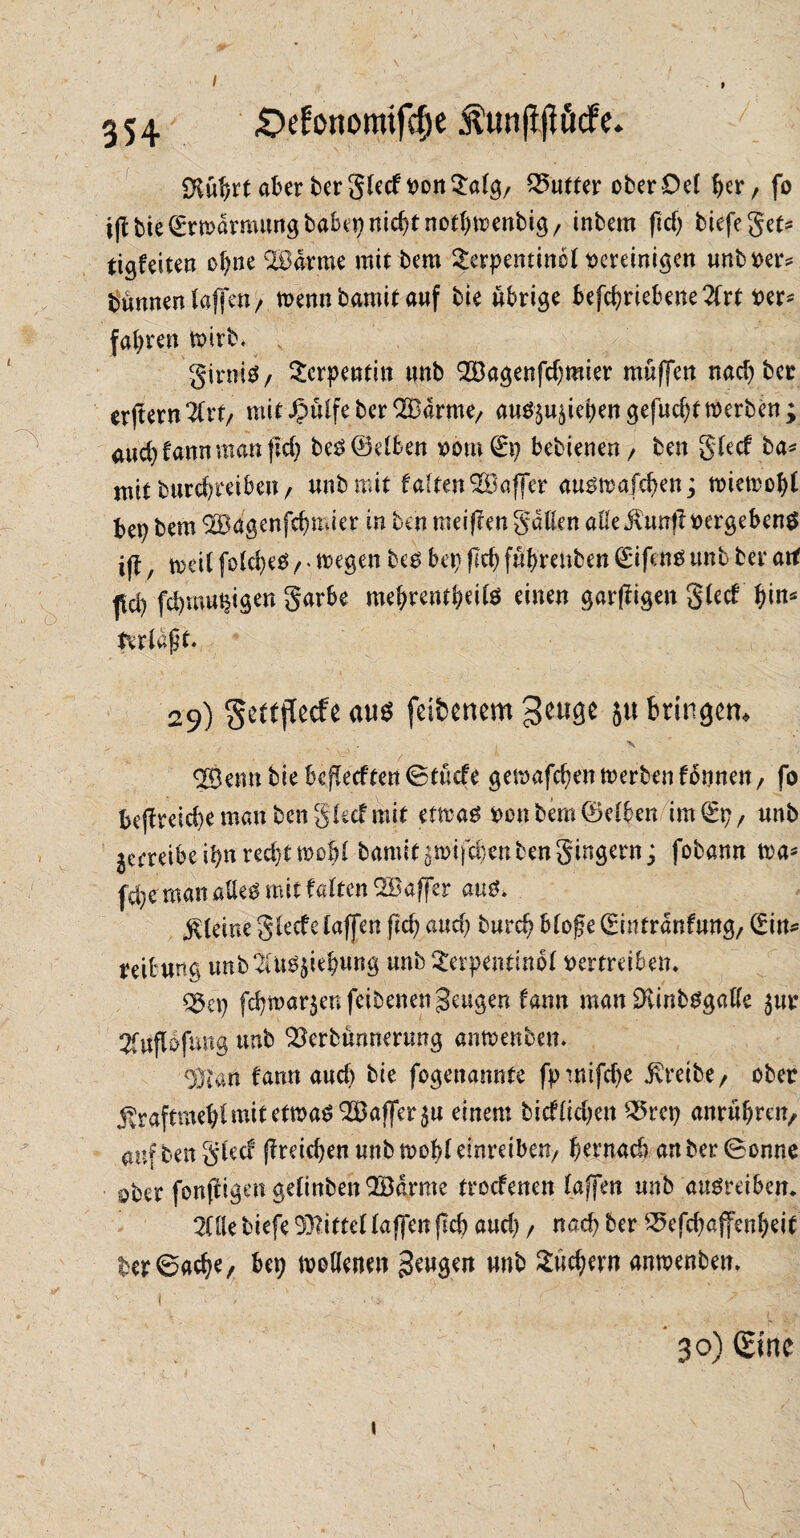 354 Oekonomische Kunststücke.
Rührt aber der Fleck von Talg, Butter oder Oel her, so
ist die Erwärmung dabey nicht nothwendig, indem sich diese Fet-
tigkeiten ohne Wärme mit dem Terpentinöl vereinigen und ver-
dünnen lassen, wenn damit auf die übrige beschriebene Art ver-
fahren wird.
Firniß, Terpentin und Wagenschmier müssen nach der
erstern Art, mit Hülfe der Wärme, auszuziehen gesucht werden;
auch kann man sich des Gelben vom Ey bedienen, den Fleck da-
mit durchreiben, und mit kalten Wasser auswaschen; wiewohl
bey dem Wägenschmier in den meisten Fällen alle Kunst vergebens
ist, weil solches, wegen des bey sich führenden Eisens und der an
sich schmutzigen Farbe mehrentheils einen garstigen Fleck hin-
terläßt.
29) Fettflecke aus seidenem Zeuge zu bringen.
Wenn die befleckten Stücke gewaschen werden können, so
bestreiche man den Fleck mit etwas von dem Gelben im Ey, und
zerreibe ihn recht wohl damit zwischen den Fingern; sodann wa-
sche man alles mit kalten Wasser aus.
Kleine Flecke lassen sich auch durch bloße Eintränkung, Ein-
reibung und Ausziehung und Terpentinöl vertreiben.
Bey schwarzen seidenen Zeugen kann man Rindsgalle zur
Auflösung und Verdünnerung anwenden.
Man kann auch die sogenannte spanische Kreide, oder
Kraftmehl mit etwas Wasser zu einem dicklichen Brey anrühren,
auf den Fleck streichen und wohl einreiben, hernach an der Sonne
oder sonstigen gelinden Wärme trockenen lassen und ausreiben.
Alle diese Mittel lassen sich auch, nach der Beschaffenheit
der Sache, bey wollenen Zeugen und Tüchern anwenden.
30) Eine